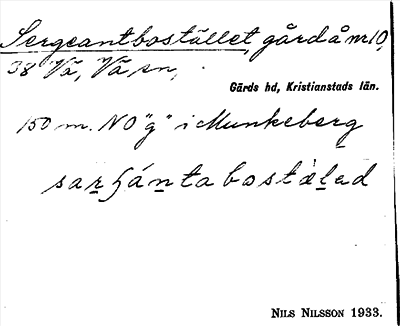 Sergeantbostället, gård å nr 10,
38 Vä, Vä sn,
Gärds hd, Kristianstads län.
150 m. NO "g" i Munkeberg
sarʃántabostäled
NILS NILSSON 1933.